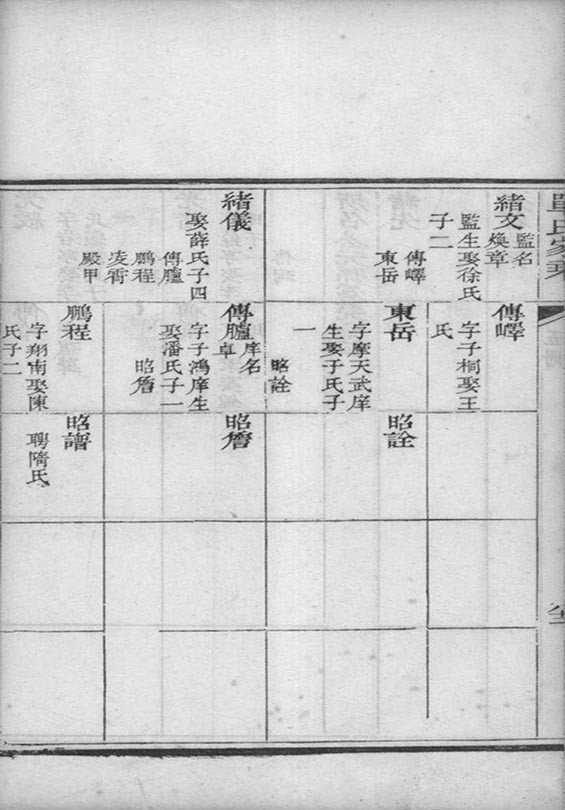 單氏家乘
緒文
監名
煥章
監生娶徐氏
子二
傳嶧
東岳
緒儀
娶薛氏子四
傳臚
鵬程
凌霄
殿甲
傳嶧
字子桐娶王
氏
東岳
字摩天武庠
生娶子氏子
一
昭詮
傳臚
庠名
卓
字子鴻庠生
娶潘氏子一
昭詹
鵬程
字翔南娶陳
氏子二
昭詮
昭詹
昭譜
聘隋氏